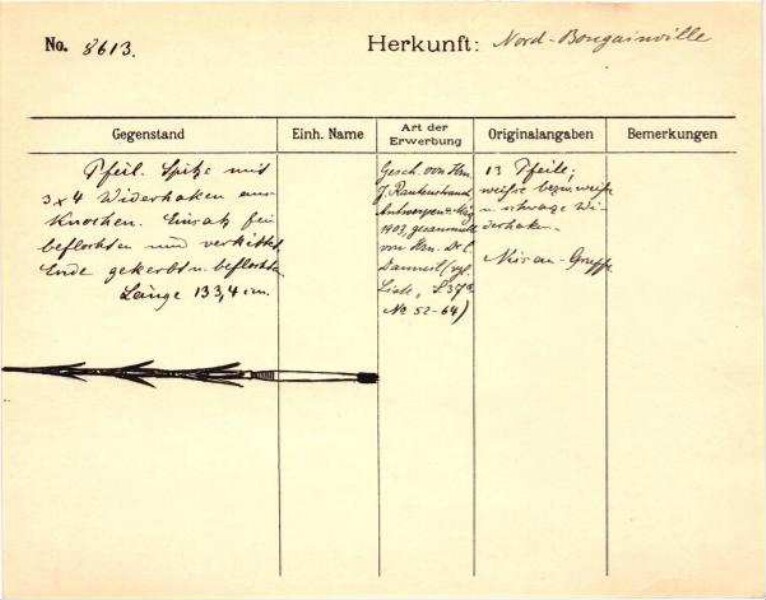 No. 8613.
Herkunft: Nord-Bougainville
Gegenstand
Einh. Name
Art der
Erwerbung
Originalangaben
Bemerkungen
Pfeil. Spitze mit
3 x 4 Widerhaken aus
Knochen. Einsatz fein
beflochten und verkittet
Ende gekerbt u. beflochten
Länge 133,4 cm.
Gesch. von Hrn.
J. Rautenstrauch,
Antwerpen
1903, gesammelt
von Hrn. Dr.
(vgl.
Liste, S 37a
No 52-64)
13 Pfeile;
weisse bezw. weisse
u. schwarze Wi-
derhaken.